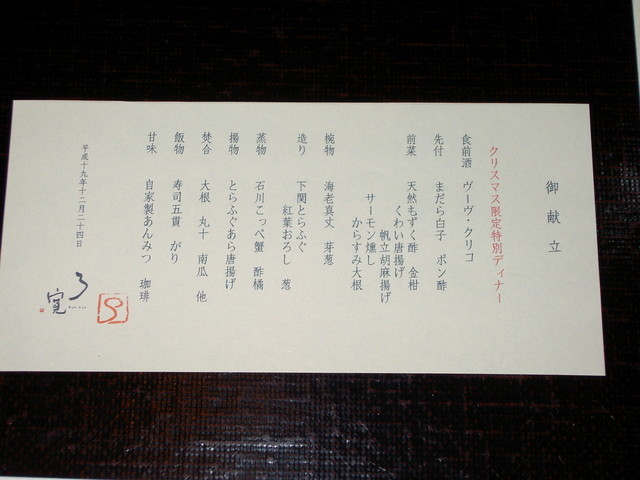 御献立
クリスマス限定特別ディナー
食前酒 ヴーヴ・クリコ
先付 まだら白子 ポン酢
前菜 天然もずく酢 金柑
くわい唐揚げ
帆立胡麻揚げ
サーモン燻し
からすみ大根
椀物 海老真丈 芽葱
造り 下関とらふぐ
紅葉おろし 葱
蒸物 石川こっぺ蟹 酢橘
揚物 とらふぐあら唐揚げ
焚合 大根 丸十 南瓜 他
飯物 寿司五貫 がり
甘味 自家製あんみつ 珈琲
平成十九年十二月二十四日
ろ寛